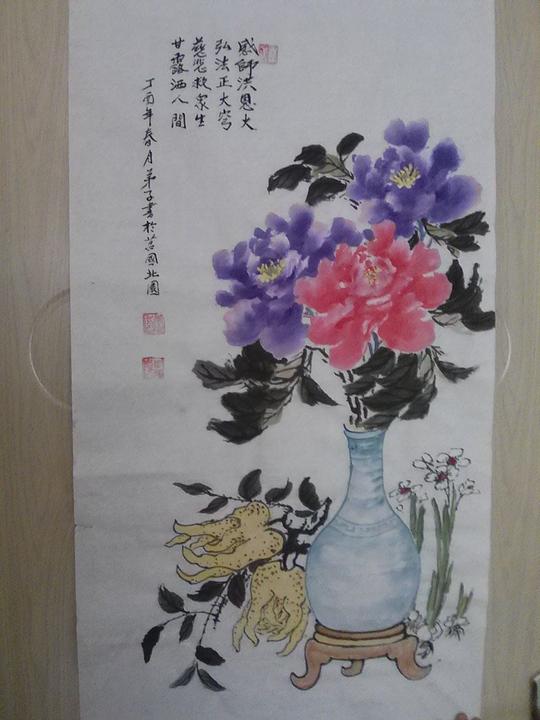 感師洪恩大
弘法正大穹
慈悲救衆生
甘露洒人間
丁酉年春月弟子書於莒國北園